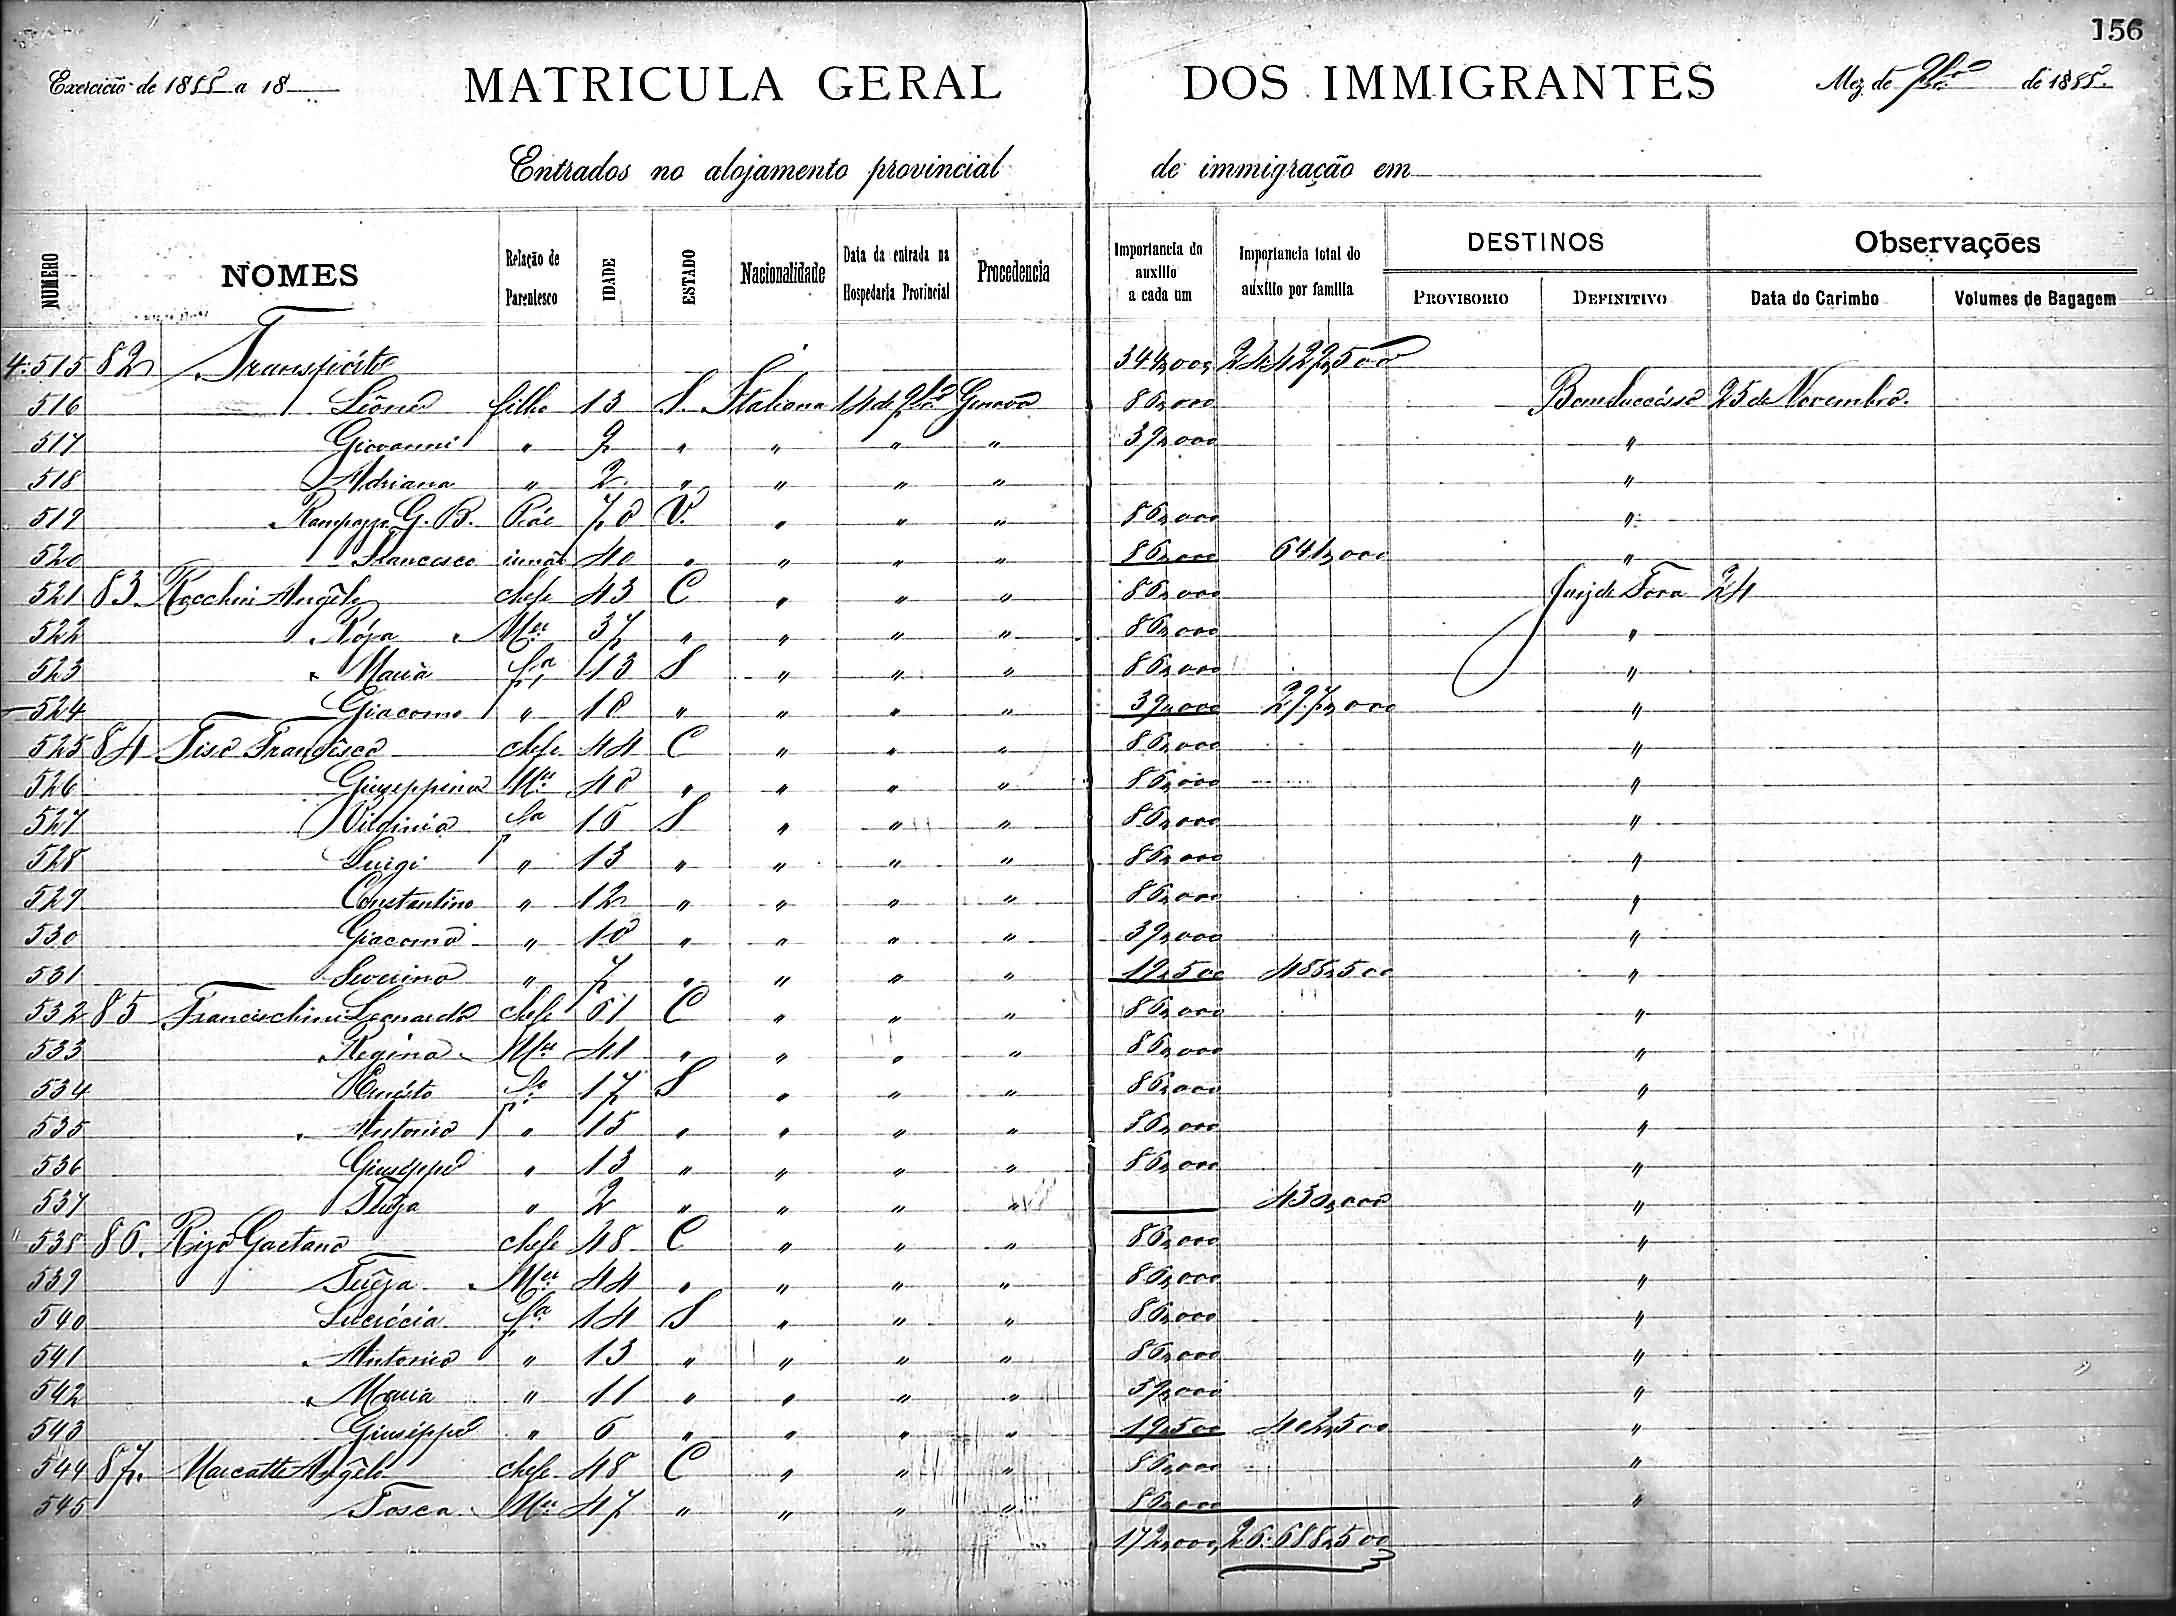 156
Exercicio de 1888 a 18
MATRICULA GERAL DOS IMMIGRANTES
Mez de 9bro de 1888
Entrados no alojamento provincial de immigração em
NUMERO NOMES Relação de Parentesco IDADE ESTADO Nacionalidade Data da entrada na Hospedaria Provincial Procedencia Importancia do auxilio a cada um Importancia total do auxilio por familia DESTINOS PROVISORIO DEFINITIVO Observações Data do Carimbo Volumes de Bagagem
4:515 82 Transpórte 344,000 24:422,500
516 Leóne filho 13 S. Italiana 14 de 9bro Genova 86,000 Bom Successo 25 de Novembro.
517 Giovanni " 9 " " " " 39,000 "
518 Adriana " 2 " " " " "
519 Rampazzo G. B. Páe 70 V. " " " 86,000 "
520 " Francesco irmão 40 " " " " 86,000 641,000 "
521 83 Rocchini Angélo chefe 43 C " " " 86,000 Juiz de Fora 24
522 " Róza " Mer 37 " " " " 86,000 "
523 " Maria fa 13 S " " " 86,000 "
524 Giacomo " 10 " " " " 39,000 297,000 "
525 84 Tiso Francisco chefe 44 C " " " 86,000 "
526 Giuseppina Mer 40 " " " " 86,000 "
527 Virginia fa 16 S " " " 86,000 "
528 Luigi " 13 " " " " 86,000 "
529 Constantino " 12 " " " " 86,000 "
530 Giacomo " 10 " " " " 39,000 "
531 Severino " 7 " " " " 19,500 488,500 "
532 85 Francischini Leonardo chefe 61 C " " " 86,000 "
533 " Regina " Mer 41 " " " " 86,000 "
534 Ernésto fo 17 S " " " 86,000 "
535 " Antonio " 15 " " " " 86,000 "
536 Giuséppe " 13 " " " " 86,000 "
537 " 2 " " " " 430,000 "
538 86. Rizo Gaetano chefe 48 C " " " 86,000 "
539 " Mer 44 " " " " 86,000 "
540 Lucrécia fa 14 S " " " 86,000 "
541 " Antonio " 13 " " " " 86,000 "
542 " Maria " 11 " " " " 39,000 "
543 Giuséppe " 6 " " " " 19,500 402,500 "
544 87. Marcatto Angélo chefe 48 C " " " 86,000 "
545 Tosca Mer 47 " " " " 86,000 "
172,000 26:688,500